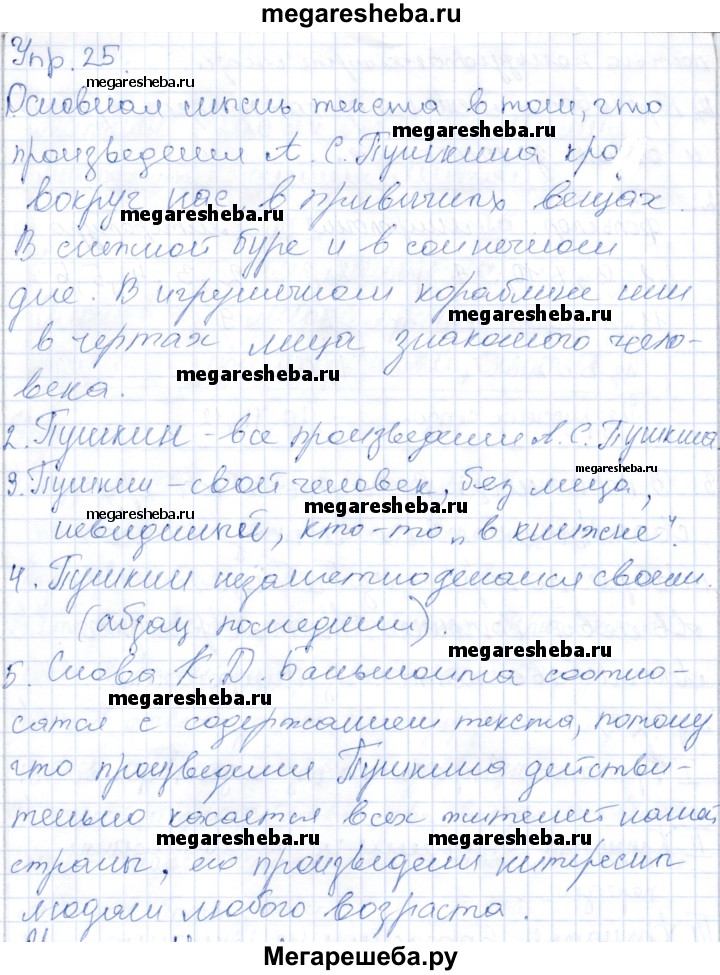 megaresheba.ru
Упр. 25.
megaresheba.ru
Основная мысль текста в том, что
megaresheba.ru
произведения А. С. Пушкина кро
вокруг нас, в привычных вещах.
megaresheba.ru
В снежной буре и в солнечном
дне. В игрушечном кораблике или
megaresheba.ru
в чертах лица знакомого чело-
megaresheba.ru
века.
2. Пушкин - все произведения А. С. Пушкина.
megaresheba.ru
3. Пушкин - свой человек, без лица,
megaresheba.ru
невидимый, кто-то „в книжке“.
megaresheba.ru
4. Пушкин незаметно делался своим.
(абзац последний).
megaresheba.ru
5. Слова К. Д. Бальмонта соотно-
megaresheba.ru
сятся с содержанием текста, потому
что произведения Пушкина действи-
тельно касается всех жителей нашей
megaresheba.ru megaresheba.ru
страны, его произведени интересны
людям любого возраста.
Мегарешеба.ру